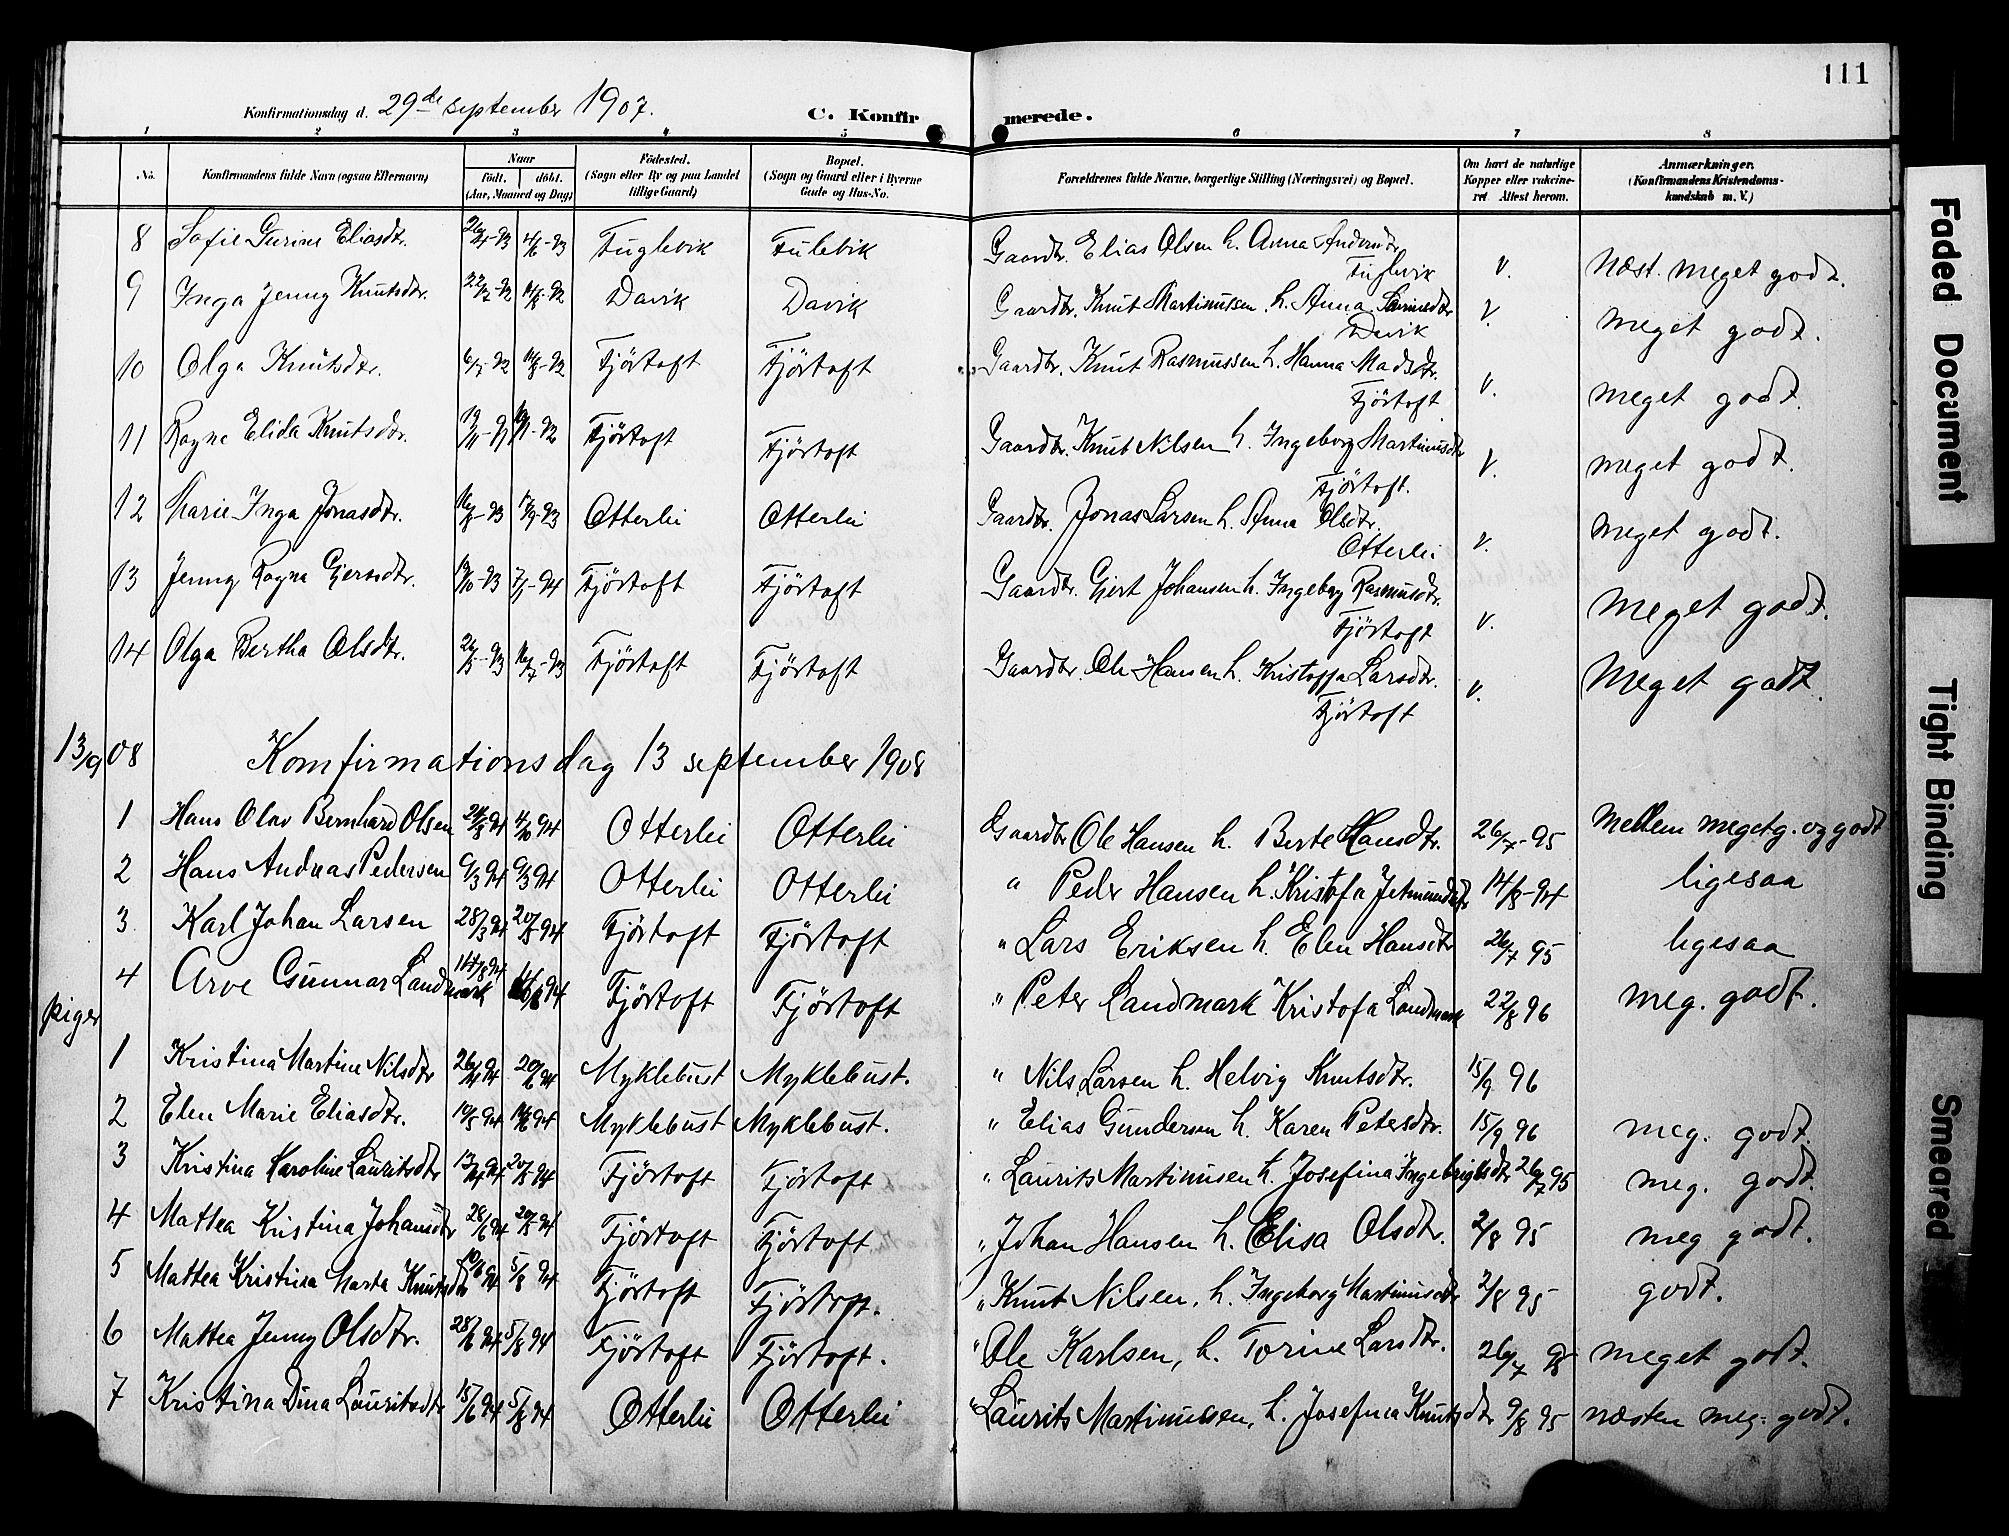 111
Konfirmationsdag d. 29de september 1907. C. Konfirmerede.
1 2 3 4 5 6 7 8
No. Konfirmandens fulde Navn (ogsaa Efternavn) Naar födt. döbt. (Aar, Maaned og Dag) Födested. (Sogn eller By og paa Landet tillige Gaard) Bopæl. (Sogn og Gaard eller i Byerne Gade og Hus-No. Forældrenes fulde Navne, borgerlige Stilling (Næringsvei) og Bopæl. Om havt de naturlige Kopper eller vakcineret Attest herom. Anmærkninger. (Konfirmandens Kristendomskundskab m. V.)
8 Sofie Gurine Eliasdtr. Fuglevik Fulevik Gaardbr. Elias Olsen h. Anna Andersdtr Fuglevik v. Næst. meget godt.
9 Inga Jenny Knutsdtr. Davik Davik Gaardbr. Knut Martinussen h. Anna Davik v. meget godt.
10 Olga Knutsdtr. Fjörtoft Fjörtoft Gaardbr. Knut Rasmussen h. Hanna Madsdtr. Fjörtoft v. meget godt.
11 Ragna Elida Knutsdtr. Fjörtoft Fjörtoft Gaardbr. Knut Nilsen h. Ingeborg Martinusdtr Fjörtoft. v. meget godt.
12 Marie Inga Jonasdtr. Otterlei Otterlei Gaardbr. Jonas Larsen h. Anna Olsdtr. Otterlei v. meget godt.
13 Jenny Ragna Gjertsdtr. Fjörtoft Fjörtoft Gaardbr. Gjert Johansen h. Ingeborg Rasmusdtr. Fjörtoft v. meget godt.
14 Olga Bertha Olsdtr. Fjörtoft Fjörtoft Gaardbr. Ole Hansen h. Kristoffa Larsdtr. Fjörtoft v. Meget godt.
13/9 08 Komfirmationsdag 13 september 1908
1 Hans Olav Bernhard Olsen 4/10 94 Otterlei Otterlei Gaardbr Ole Hansen h. Berte Hansdtr. 26/7-95 Mellem megetg. og godt
2 Hans Andreas Pedersen Otterlei Otterlei " Peder Hansen h. Kristofa Jetmundsdtr 14/8-94 ligesaa
3 Karl Johan Larsen 28/3 94 20/5 94 Fjörtoft Fjörtoft " Lars Eriksen h. Elen Hansdtr 26/7 95 ligesaa
4 Arve Gunnar Landmark 14/8 94 Fjörtoft Fjörtoft " Peter Landmark Kristofa Landmark 22/8 96 meg. godt.
piger
1 Kristina Martine Nilsdtr 26/4 94 Myklebust Myklebust. " Nils Larsen h. Helvig Knutsdtr. 15/9 96
2 Elen Marie Eliasdtr. Myklebust Myklebust. " Elias Gundersen h. Karen Petersdtr. 15/9 96 meg. godt.
3 Kristina Karoline Lauritsdtr 13/4 94 20/5 94 Fjörtoft Fjörtoft " Laurits Martinusen h. Josefina Ingebrigtsdtr 26/7 95 meg. godt.
4 Mattea Kristina Johansdtr 20/5 94 Fjörtoft Fjörtoft " Johan Hansen h. Elisa Olsdtr. 2/8 95 meg godt.
5 Mattea Kristina Marta Knutsdtr 10/6 94 5/8 94 Fjörtoft Fjörtoft. " Knut Nilsen, h. Ingeborg Martinusdtr 2/8 95 godt.
6 Mattea Jenny Olsdtr. 28/6 94 5/8 94 Fjörtoft Fjörtoft. " Ole Karlsen, h. Torine Larsdtr. 26/7 95 meget godt.
7 Kristina Dina Lauritsdtr 15/6 94 5/8 94 Otterlei Otterlei " Laurits Martinussen, h. Josefina Knutsdtr 9/8 95 næsten meg. godt.
Faded Document
Tight Binding
Smeared